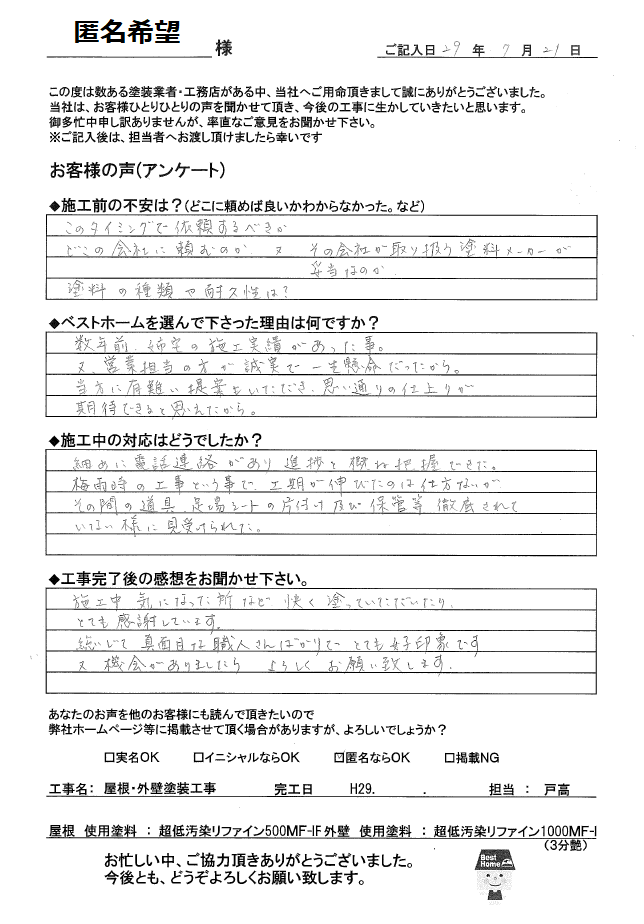 匿名希望 様
ご記入日 29 年 7 月 21 日
この度は数ある塗装業者・工務店がある中、当社へご用命頂きまして誠にありがとうございました。
当社は、お客様ひとりひとりの声を聞かせて頂き、今後の工事に生かしていきたいと思います。
御多忙中申し訳ありませんが、率直なご意見をお聞かせ下さい。
※ご記入後は、担当者へお渡し頂けましたら幸いです
お客様の声(アンケート)
◆施工前の不安は？(どこに頼めば良いかわからなかった。など)
このタイミングで依頼するべきか
どこの会社に頼むのか 又 その会社が取り扱う塗料メーカーが
妥当なのか.
塗料の種類や耐久性は?
◆ベストホームを選んで下さった理由は何ですか？
数年前、姉宅の施工実績があった事。
又、営業担当の方が誠実で一生懸命だったから。
当方に有難い提案をいただき、思い通りの仕上りが
期待できると思えたから。
◆施工中の対応はどうでしたか？
細めに電話連絡があり 進捗を概ね把握できた。
梅雨時の工事という事で、工期が伸びたのは仕方ないが
その間の道具、足場シートの片付け及び保管等 徹底されて
いない様に見受けられた。
◆工事完了後の感想をお聞かせ下さい。
施工中 気になった所など 快く塗っていただいたり、
とても感謝しています。
総じて 真面目な職人さんばかりで とても好印象です
又 機会がありましたら よろしく お願い致します.
あなたのお声を他のお客様にも読んで頂きたいので
弊社ホームページ等に掲載させて頂く場合がありますが、よろしいでしょうか？
□実名OK □イニシャルならOK ☑匿名ならOK □掲載NG
工事名： 屋根・外壁塗装工事 完工日 H29. . 担当 ： 戸高
屋根 使用塗料 ： 超低汚染リファイン500MF-IF 外壁 使用塗料 ： 超低汚染リファイン1000MF-I
(3分艶)
お忙しい中、ご協力頂きありがとうございました。
今後とも、どうぞよろしくお願い致します。
Best Home